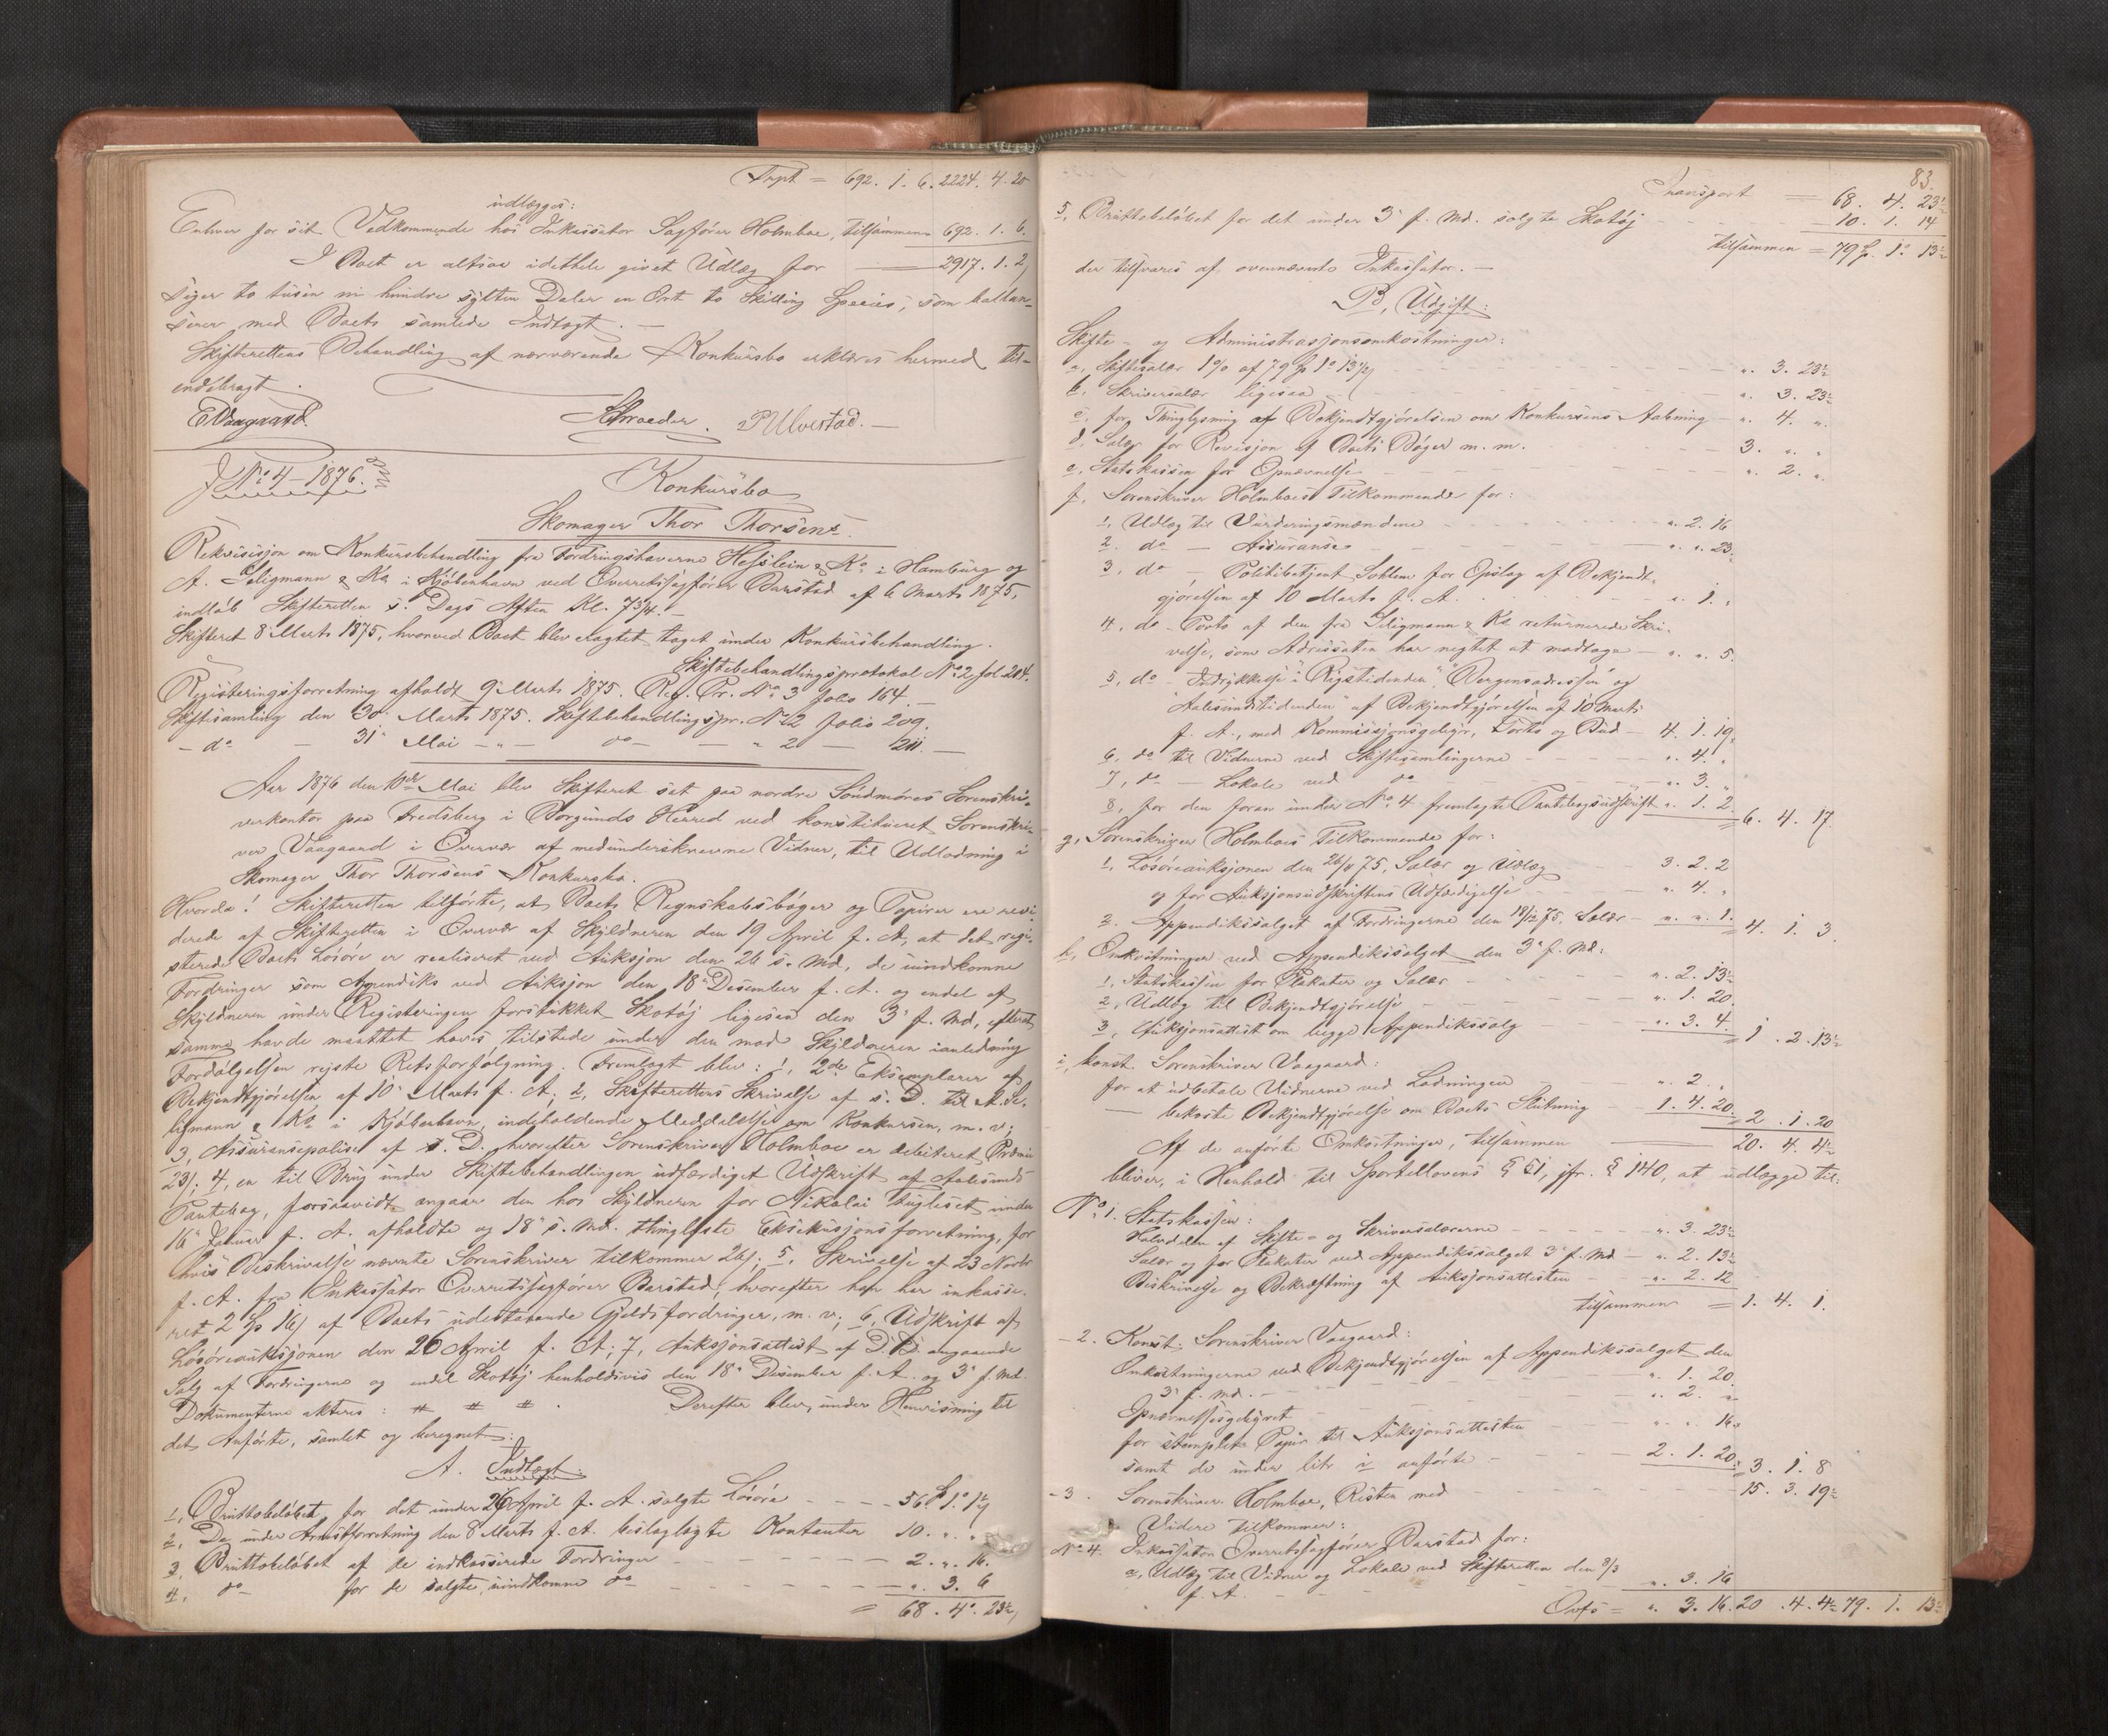 Trpt = 692. 1. 6. 2224. 4. 20
udlægges:
Enhver for sit Vedkommende hos Inkassator Sagfører Holmboe, tilsammen 692. 1. 6.
I Boet er altsaa idethele givet Udlæg for — 2917. 1. 2,
siger to tusen ni hundre sytten Daler en Ort to Skilling Species, som ballan-
serer med Boets samlede Indtægt. —
Skifterettens Behandling af nærværende Konkursbo erklæres hermed til-
endebragt.
E Vaagaard. Schroeder. P Ulvestad. —
No 4 – 1876.
Konkursbo
Skomager Thor Thorsens.
Rekvisisjon om Konkursbehandling fra Fordringshaverne Hesslein & Ko i Hamburg og
A. Seligmann & Ko i Kjøbenhavn ved Overretssagfører Barstad af 6 Marts 1875,
indløb Skifteretten s. Dags Aften Kl. 7 3/4. —
Skifteret 8 Marts 1875, hvorved Boet blev eragtet taget under Konkursbehandling.
Skiftebehandlingsprotokol No 2 fol 204.
Registeringsforretning afholdt 9 Marts 1875. Reg. Pr. No 3 folio 164. —
Skiftesamling den 30 Marts 1875. Skiftebehandlingspr. No 2 folio 209.
– do – 31 Mai – " – do – " 2 – 211. —
Aar 1876 den 10de Mai blev Skifteret sat paa nordre Søndmøres Sorenskri-
verkontor paa Fredsberg i Borgunds Herred ved konstitueret Sorenskri-
ver Vaagaard i Overvær af medunderskrevne Vidner, til Udlodning i
Skomager Thor Thorsens Konkursbo.
Hvorda! Skifteretten tilførte, at Boets Regnskabsbøger og Papirer ere revi-
derede af Skifteretten i Overvær af Skyldneren den 19 April f. A., at det regi-
sterede Boets Løsøre er realiseret ved Auksjon den 26 s. Md., de uindkomne
Fordringer som Appendiks ved Auksjon den 18 Desember f. A. og endel af
Skyldneren under Registeringen forstikket Skotøj ligesaa den 3 f. Md., efterat
samme havde maattet haves tilstede under den mod Skyldneren i anledning
Fordølgelsen rejste Retsforfølgning. Fremlagt blev: 1, 2de Eksemplarer af
Bekjendtgjørelsen af 10 Marts f. A.; 2, Skifterettens Skrivelse af s. D. til A. Se-
ligmann & Ko i Kjøbenhavn, indeholdende Meddelelse om Konkursen, m. v.;
3, Assuransepolise af s. D. hvorefter Sorenskriver Holmboe er debiteret Præmie
23/; 4, en til Brug under Skiftebehandlingen udfærdiget Udskrift af Aalesunds
Pantebog, forsaavidt angaar den hos Skyldneren for Nikolai Fugleset under
16 Januar f. A. afholdte og 18 s. Md. thinglyste Eksekusjonsforretning, for
hvis Beskrivelse nævnte Sorenskriver tilkommer 26/; 5, Skrivelse af 23 Novbr
f. A. fra Inkassator Overretssagfører Barstad, hvorefter han har inkasse-
ret 2 Sp 16/ af Boets udestaaende Gjeldsfordringer, m. v.; 6, Udskrift af
Løsøreauksjonen den 26 April f. A.; 7, Auksjonsattest af D. D. angaaende
Salg af Fordringerne og endel Skotøj henholdsvis den 18 Desember f. A. og 3 f. Md.
Dokumenterne akteres: # # #. Derefter blev, under Henvisning til
det Anførte, samlet og beregnet:
A. Indtægt:
1, Bruttobeløbet for det under 26 April f. A. solgte Løsøre - - - 56
2, De under Arrestforretning den 8 Marts f. A. beslaglagte Kontanter 10. " "
3, Bruttobeløbet af de indkasserede Fordringer - - - 2. " 16.
4, do for de solgte, uindkomne do - - - " 3. 6
= 68. 4. 23½
83.
Transport = 68. 4. 23½
5, Bruttobeløbet for det under 3 f. Md. solgte Skotøj 10. 1. 14
tilsammen = 79 Sp. 1. 13½
der tilsvares af ovennævnte Inkassator. —
B, Udgift:
Skifte- og Administrasjonsomkostninger:
a, Skiftesalær 1% af 79 Sp 1 13½ - - - " 3. 23½
b, Skriversalær ligesaa - - - " 3. 23½
c, for Thinglysning af Bekjendtgjørelsen om Konkursens Aabning - " 4. "
d, Salær for Revisjon af Boets Bøger m. m. - - - 3. " "
e, Statskassen for Opnævnelse - - - " 2. "
f, Sorenskriver Holmboes Tilkommende for:
1, Udlæg til Vurderingsmændene - - - " 2. 16
2, do — Assuranse - - - " " 23.
3, do — Politibetjent Sohlem for Opslag af Bekjendt-
gjørelsen af 10 Marts f. A. - - - " 1. "
4, do – Porto af den fra Seligmann & Ko returnerede Skri-
velse, som Adressaten har negtet at modtage — " " 5.
5, do – Indrykkelse i "Rigstidenden", "Bergensadressen" og
"Aalesundstidenden" af Bekjendtgjørelsen af 10 Marts
f. A., med Kommissjonsgebyr, Porto og Bud — 4. 1. 19.
6, do til Vidnerne ved Skiftesamlingerne - - - " 4. "
7, do — Lokale ved do - - - " 3. "
8, for den foran under No 4 fremlagte Pantebogsudskrift " 1. 2 = 6. 4. 17
g, Sorenskriver Holmboes Tilkommende for:
1, Løsøreauksjonen den 26/4 75, Salær og Udlæg 3. 2. 2
og for Auksjonsudskriftens Udfærdigelse - - - " 4. "
2, Appendikssalget af Fordringerne den 18/12 75, Salær — " " 1. = 4. 1. 3.
h, Omkostninger ved Appendikssalget den 3 f. Md:
1, Statskassen for Plakater og Salær - - - " 2. 13½
2, Udlæg til Bekjendtgjørelse - - - " 1. 20.
3, Auksjonsattest om begge Appendikssalg - - - " 3. 4. = 1. 2. 13½
i, konst. Sorenskriver Vaagaard:
for at udbetale Vidnerne ved Lodningen " 2. "
— bekoste Bekjendtgjørelse om Boets Slutning 1. 4. 20. = 2. 1. 20
Af de anførte Omkostninger, tilsammen — 20. 4. 4½
bliver, i Henhold til Sportellovens § 61, jfr. § 140, at udlægge til:
No 1. Statskassen:
Halvdelen af Skifte- og Skriversalærerne - - - " 3. 23½
Salær og for Plakater ved Appendikssalget 3 f. Md — " 2. 13½
Beskrivelse og Bekræftning af Auksjonsattesten - - - " 2. 12
tilsammen = 1. 4. 1.
– 2. Konst. Sorenskriver Vaagaard:
Omkostningerne ved Bekjendtgjørelsen af Appendikssalget den
3 f. Md. - - - " 1. 20.
Opnævnelsesgebyret - - - " 2. "
for stemplet Papir til Auksjonsattesten " " 16.
samt de under litr i anførte - - - 2. 1. 20. = 3. 1. 8
– 3. Sorenskriver Holmboe, Resten med - - - 15. 3. 19½
Videre tilkommer:
No 4. Inkassator Overretssagfører Barstad for:
a, Udlæg til Vidner og Lokale ved Skifteretten den 8/3
f. A. - - - " 3. 16
Ovfs = " 3. 16. 20. 4. 4½ 79. 1. 13½